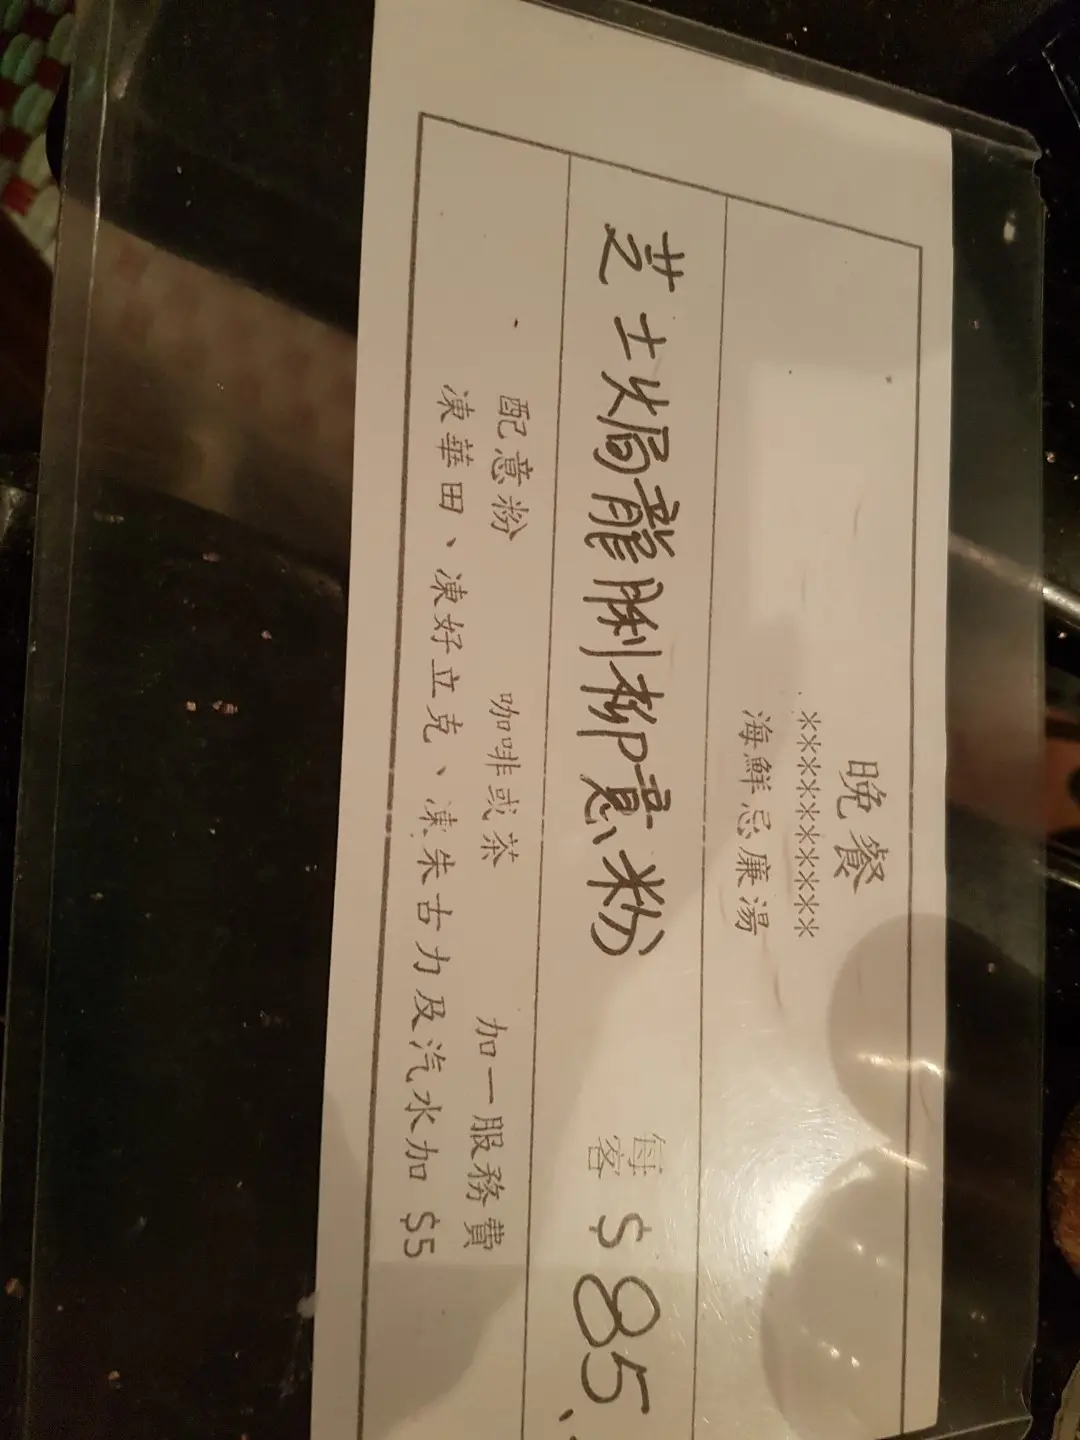 晚餐
**********
海鮮忌廉湯
芝士焗龍脷柳意粉 每客 $85
配意粉 咖啡或茶 加一服務費
凍華田、凍好立克、凍朱古力及汽水加 $5